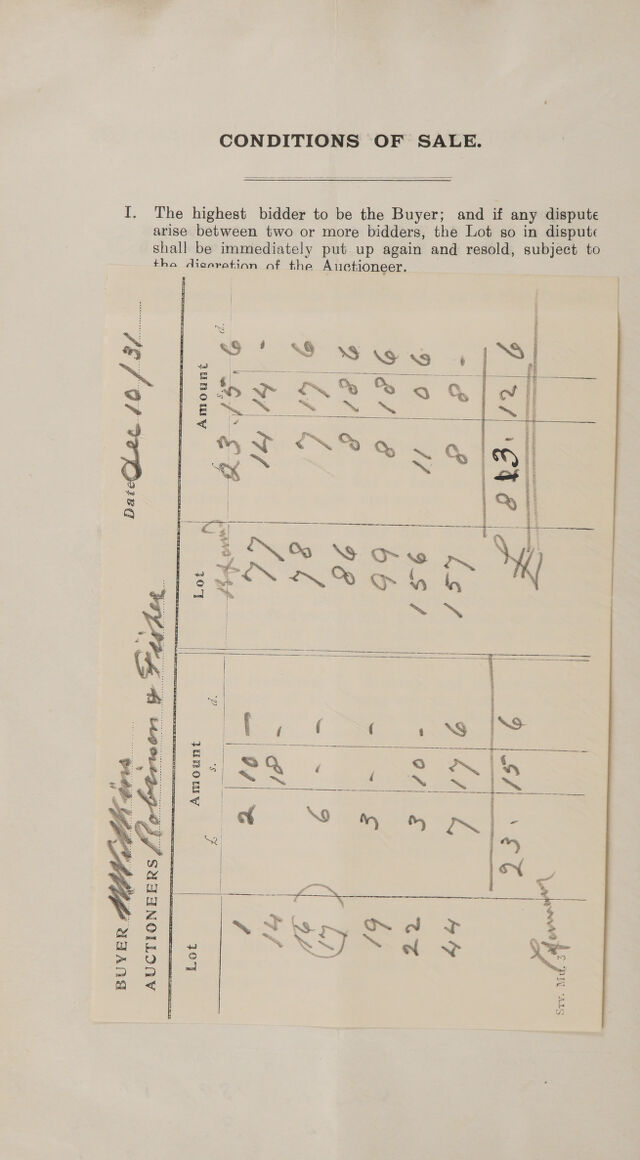 CONDITIONS OF SALE.
I. The highest bidder to be the Buyer; and if any dispute
arise between two or more bidders, the Lot so in dispute
shall be immediately put up again and resold, subject to
the discretion of the Auctioneer.
BUYER Date Dec 10/31
AUCTIONEERS Robinson & Fisher
Lot Amount Lot Amount
£ s. d. s. d.
23. 15 6
1 2 10 — 77 14 14 -
14 18 - 78 7 17 6
(16
(17) 6 - - 86 8 18 6
19 3 - - 99 8 18 6
22 3 10 - 156 11 0 6
44 7 17 6 157 8 8 -
23. 15 6 £ 83. 12 6